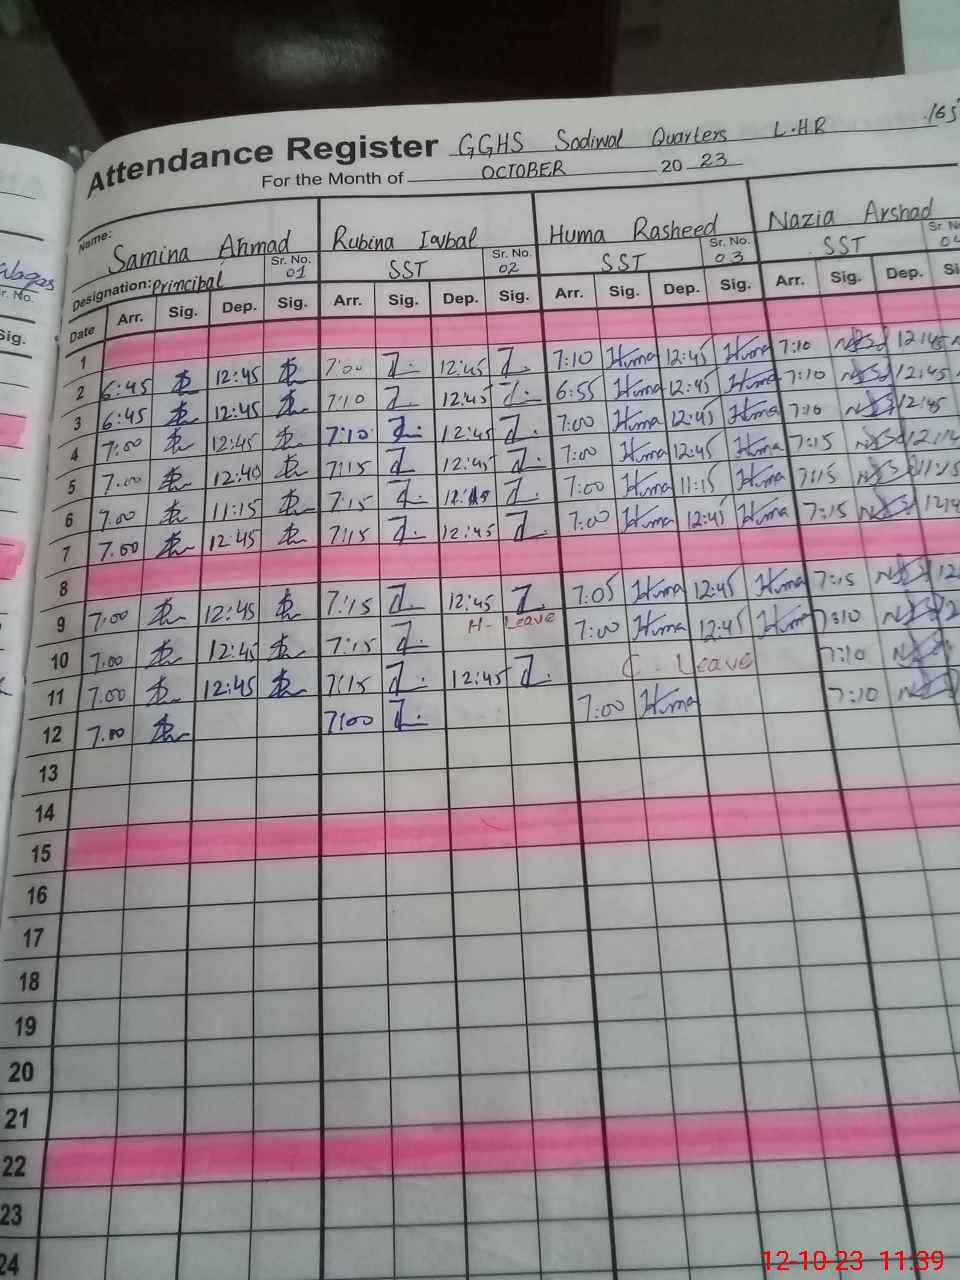 Attendance Register GGHS Sodiwal Quarters L.HR
For the Month of OCTOBER 20 23
Name: Samina Ahmad Rubina Iqbal Huma Rasheed Nazia Arshad
Designation: Principal Sr. No. 01 SST Sr. No. 02 SST Sr. No. 03 SST
Date Arr. Sig. Dep. Sig. Arr. Sig. Dep. Sig. Arr. Sig. Dep. Sig. Arr. Sig. Dep.
1
2 6:45 12:45 7:00 12:45 7:10 Huma 12:45 Huma 7:10 12:45
3 6:45 12:45 7:10 12:45 6:55 Huma 12:45 Huma 7:10 12:45
4 7:00 12:45 7:10 12:45 7:00 Huma 12:45 Huma 7:10 12:45
5 7.00 12:40 7:15 12:45 7:00 Huma 12:45 Huma 7:15
6 7.00 11:15 7:15 7:00 Huma 11:15 Huma 7:15 11:15
7 7.00 12:45 7:15 12:45 7:00 Huma 12:45 Huma 7:15
8
9 7:00 12:45 7:15 12:45 7:05 Huma 12:45 Huma 7:15
10 7.00 12:45 7:15 H- Leave 7:00 Huma 12:45 Huma 7:10
11 7.00 12:45 7:15 12:45 C - Leave 7:10
12 7.00 7:00 7:00 Huma 7:10
13
14
15
16
17
18
19
20
21
22
23
24
12-10-23 11:39